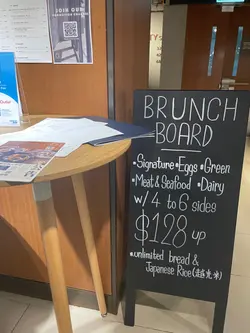 JOIN OUR
BRUNCH
BOARD
•Signature •Eggs •Green
•Meat & Seafood •Dairy
w/ 4 to 6 sides
$128 up
•unlimited bread &
Japanese Rice (越光米)